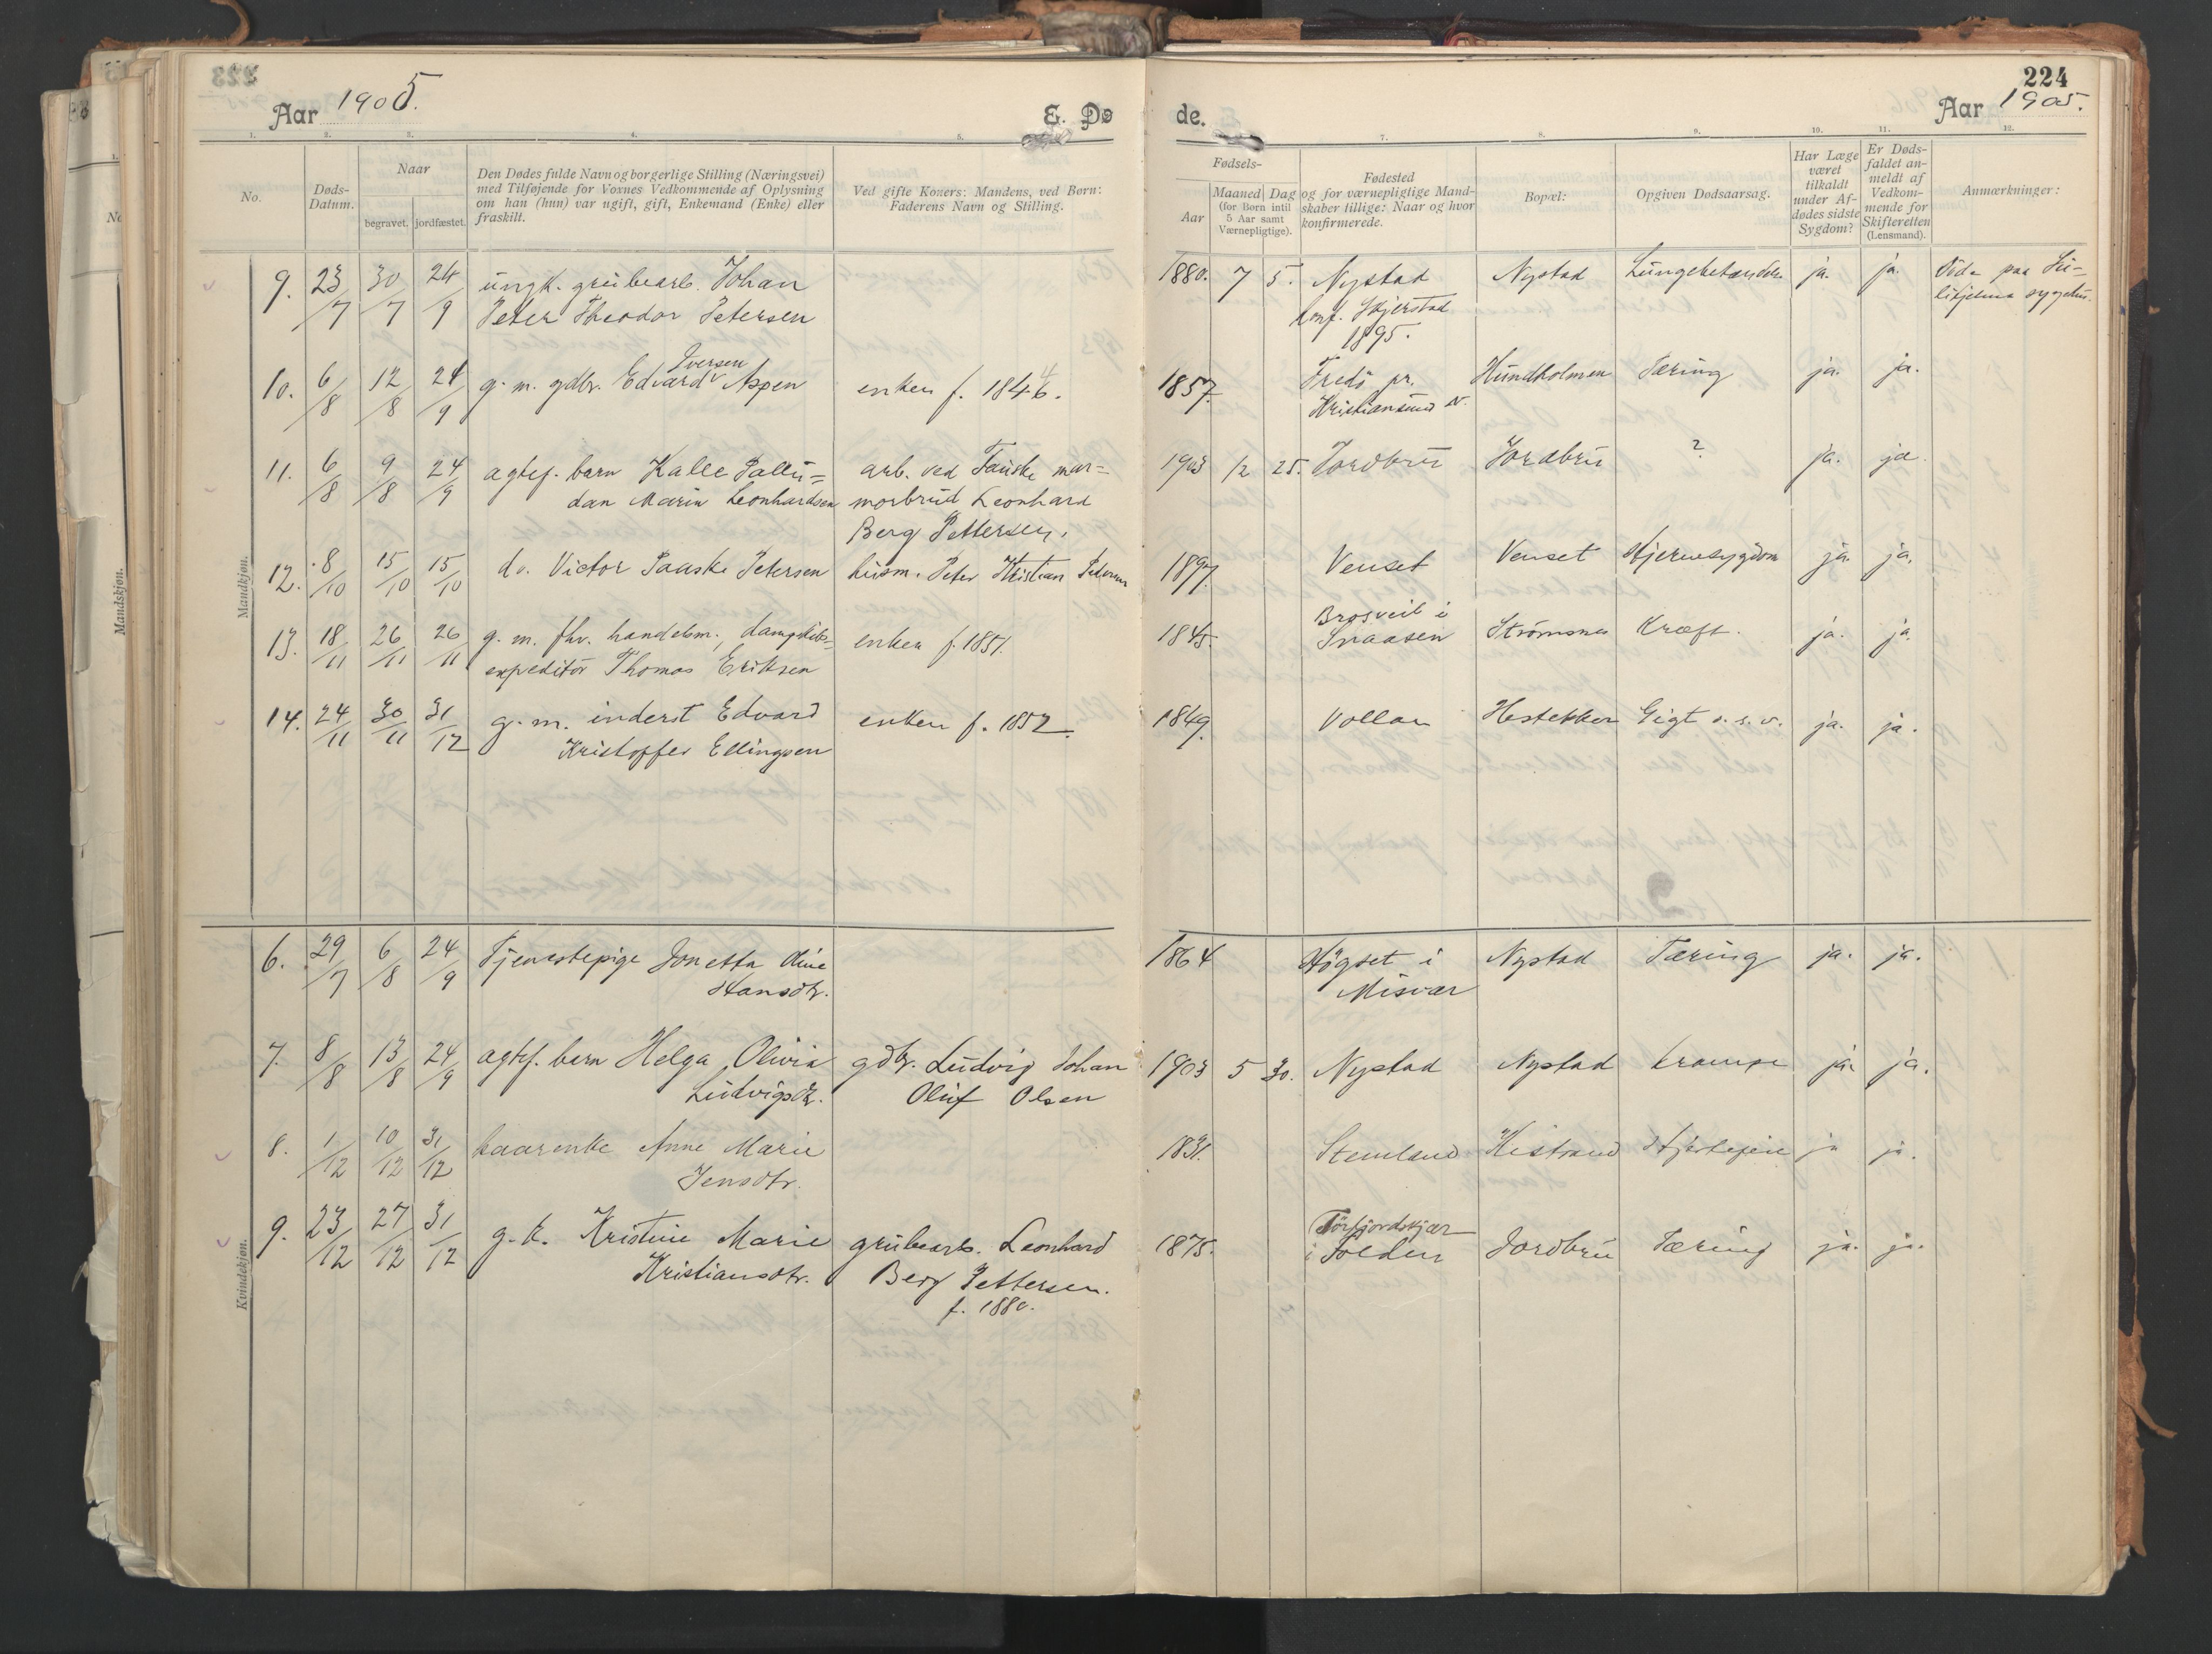 224
Aar 1905.
E. Døde.
Aar 1905.
1. 2. 3. 4. 5. 7. 8. 9. 10. 11. 12.
No.
Døds-
Datum.
Naar
begravet. jordfæstet.
Den Dødes fulde Navn og borgerlige Stilling (Næringsvei)
med Tilføjende for Voxnes Vedkommende af Oplysning
om han (hun) var ugift, gift, Enkemand (Enke) eller
fraskilt.
Ved gifte Koner: Mandens, ved Børn:
Faderens Navn og Stilling.
Fødsels-
Aar
Maaned
(for Børn intil
5 Aar samt
Værnepligtige).
Dag
Fødested
og for værnepligtige Mand-
skaber tillige: Naar og hvor
konfirmerede.
Bopæl:
Opgiven Dødsaarsag.
Har Læge
været
tilkaldt
under Af-
dødes sidste
Sygdom?
Er Døds-
faldet an-
meldt af
Vedkom-
mende for
Skifteretten
(Lensmand).
Anmærkninger:
Mandkjøn.
9. 23/7 30/7 24/9 ungk. grubearb. Johan 1880. 7 5. Nystad Nystad Lungebetændelse ja. ja. Döde paa Su-
Peter Theodor Petersen konf. Skjerstad litjelma sygehu.
1895.
10. 6/8 12/8 24/9 g. m. gdbr. Edvard Iversen Aspen enken f. 1846. 1857. Fredö pr. Hundholmen Tæring ja. ja.
Kristiansund N.
11. 6/8 9/8 24/9 agtef. barn Kalle Pallu= arb. ved Fauske mar= 1903 12 25. Jordbru Jordbru ? ja. ja
dan Marin Leonhardsen morbrud Leonhard
Berg Pettersen.
12. 8/10 15/10 15/10 do. Victor Paaske Petersen husm. Peter Kristian Petersen 1897. Venset Venset Hjernesygdom ja. ja.
13. 18/11 26/11 26/11 g. m. fhv. handelsm., dampskibs= enken f. 1851. 1845. i Strömsnes Kræft. ja. ja.
expeditör Thomas Eriksen Snaasen
14. 24/11 30/11 31/12 g. m. inderst Edvard enken f. 1852. 1849. Vollan Gigt o. s. v. ja. ja.
Kristoffer Ellingsen
Kvindekjøn.
6. 29/7 6/8 24/9 Tjenestepige Jonetta Oline 1864 Högset i Nystad Tæring ja. ja.
Hansdtr. Misvær
7. 8/8 13/8 24/9 agtef. barn Helga Olivia gdbr. Ludvig Johan 1903 5 30. Nystad Nystad Krampe ja. ja.
Ludvigsdtr. Oluf Olsen
8. 1/12 10/12 31/12 kaarenke Anne Marie 1831. Stemland Kistrand Hjertefeil ja ja.
Jensdtr.
9. 23/12 27/12 31/12 g. k. Kristine Marie grubearb. Leonhard 1875. Törfjordskjær Jordbru Tæring ja. ja.
Kristiansdtr. Berg Pettersen. i Folden
f. 1880.
Mandskjøn.